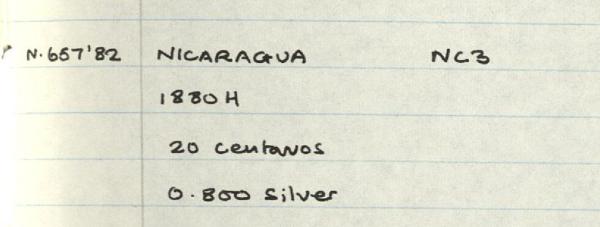 N.657'82 NICARAGUA NC3
1880H
20 centavos
0.800 silver